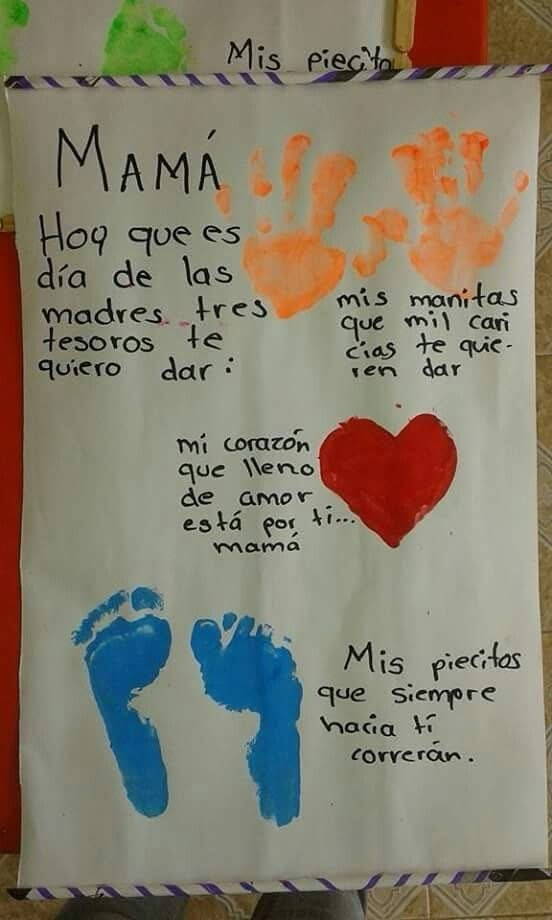 Mis piecito
MAMÁ
Hoy que es
día de las
madres tres
tesoros te
quiero dar:
mis manitas
que mil cari
cias te quie-
ren dar
mi corazón
que lleno
de amor
está por ti...
mamá
Mis piecitos
que siempre
hacia tí
correrán.